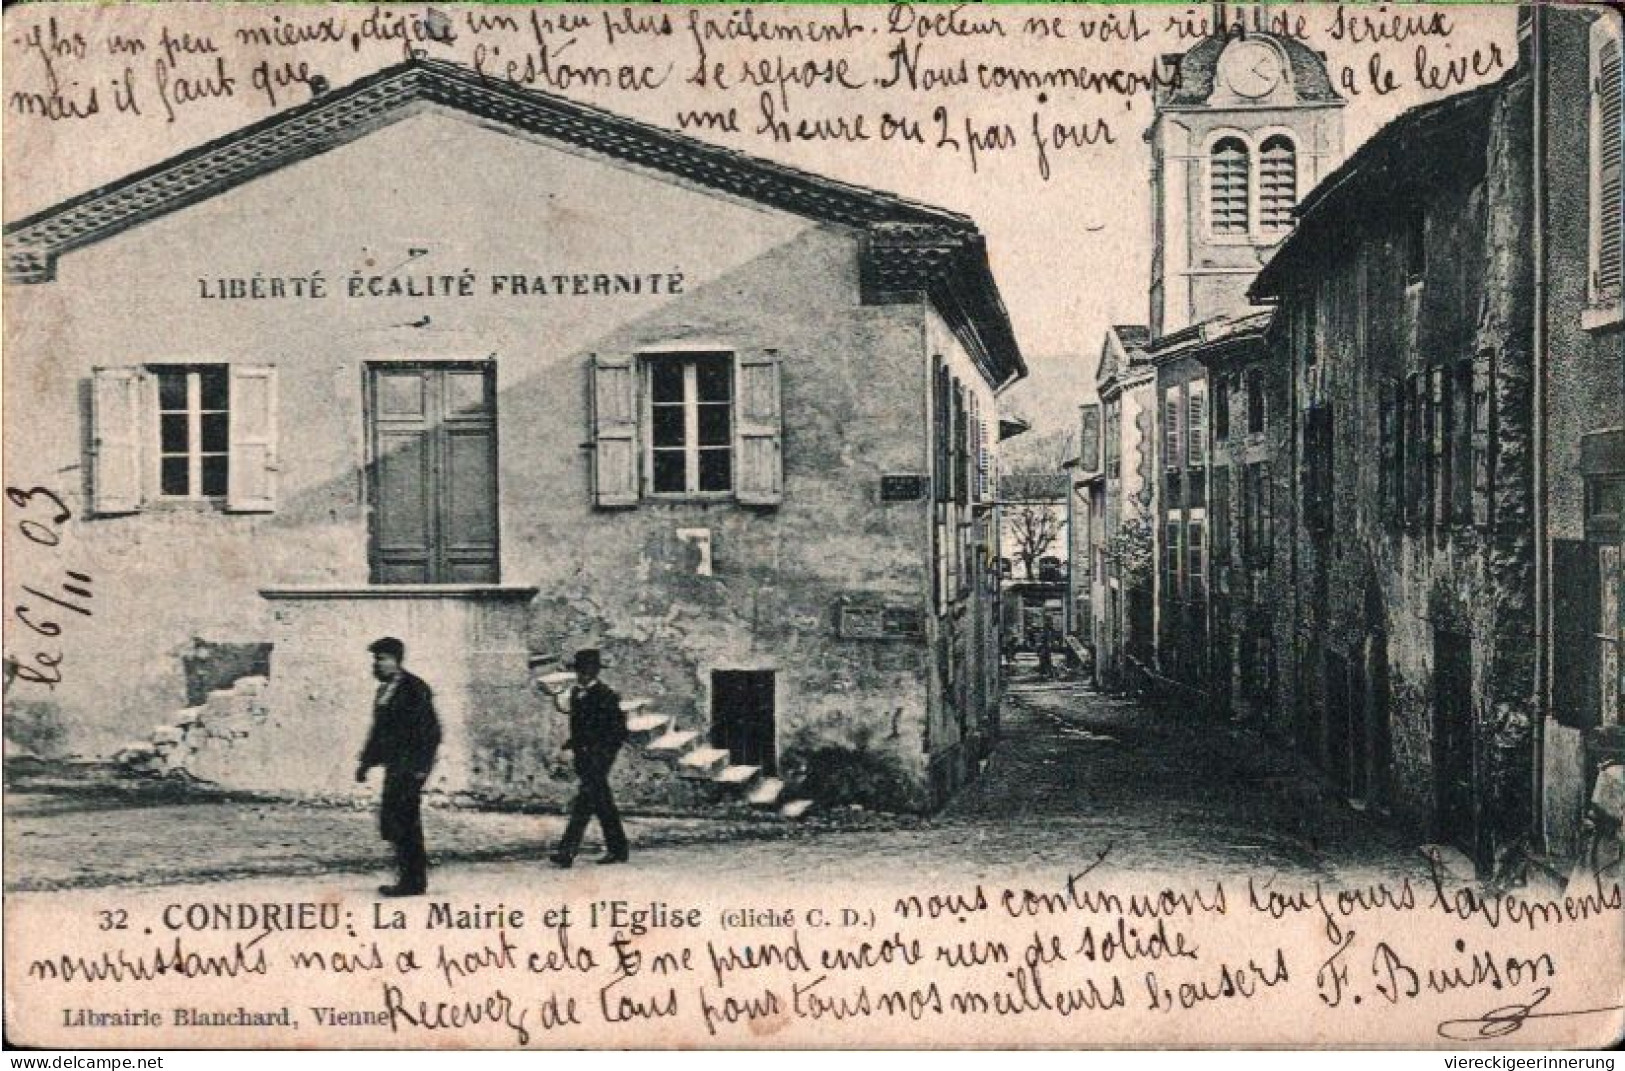 un peu mieux, digère un peu plus facilement. Docteur ne voit rien de serieux
mais il faut que l'estomac se repose. Nous commençons a le lever
une heure ou 2 par jour
LIBÉRTÉ ÉGALITÉ FRATERNITÉ
le 6/11 03
32. CONDRIEU: La Mairie et l'Eglise (cliché C. D.)
nous continuons toujours lavements
nourrissants mais a part cela ne prend encore rien de solide
Librairie Blanchard, Vienne
Recevez de tous pour tous nos meilleurs baisers F. Buisson
viereckigeerinnerung